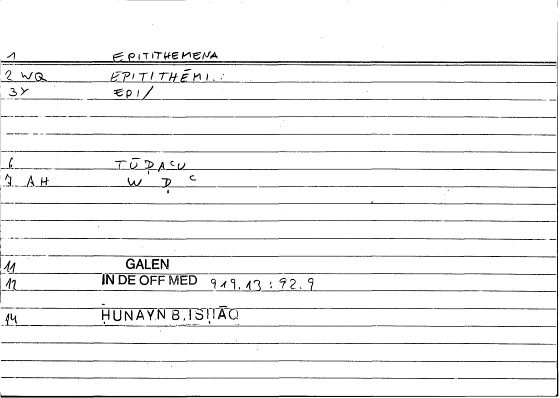 1 EPITITHEMENA
2 WQ EPITITHĒMI.:
3Y EPI/
6 TŪḌAʿU
7 AH W Ḍ ʿ
11 GALEN
12 IN DE OFF MED 919.13:92.9
14 ḤUNAYN B.ISḤĀQ